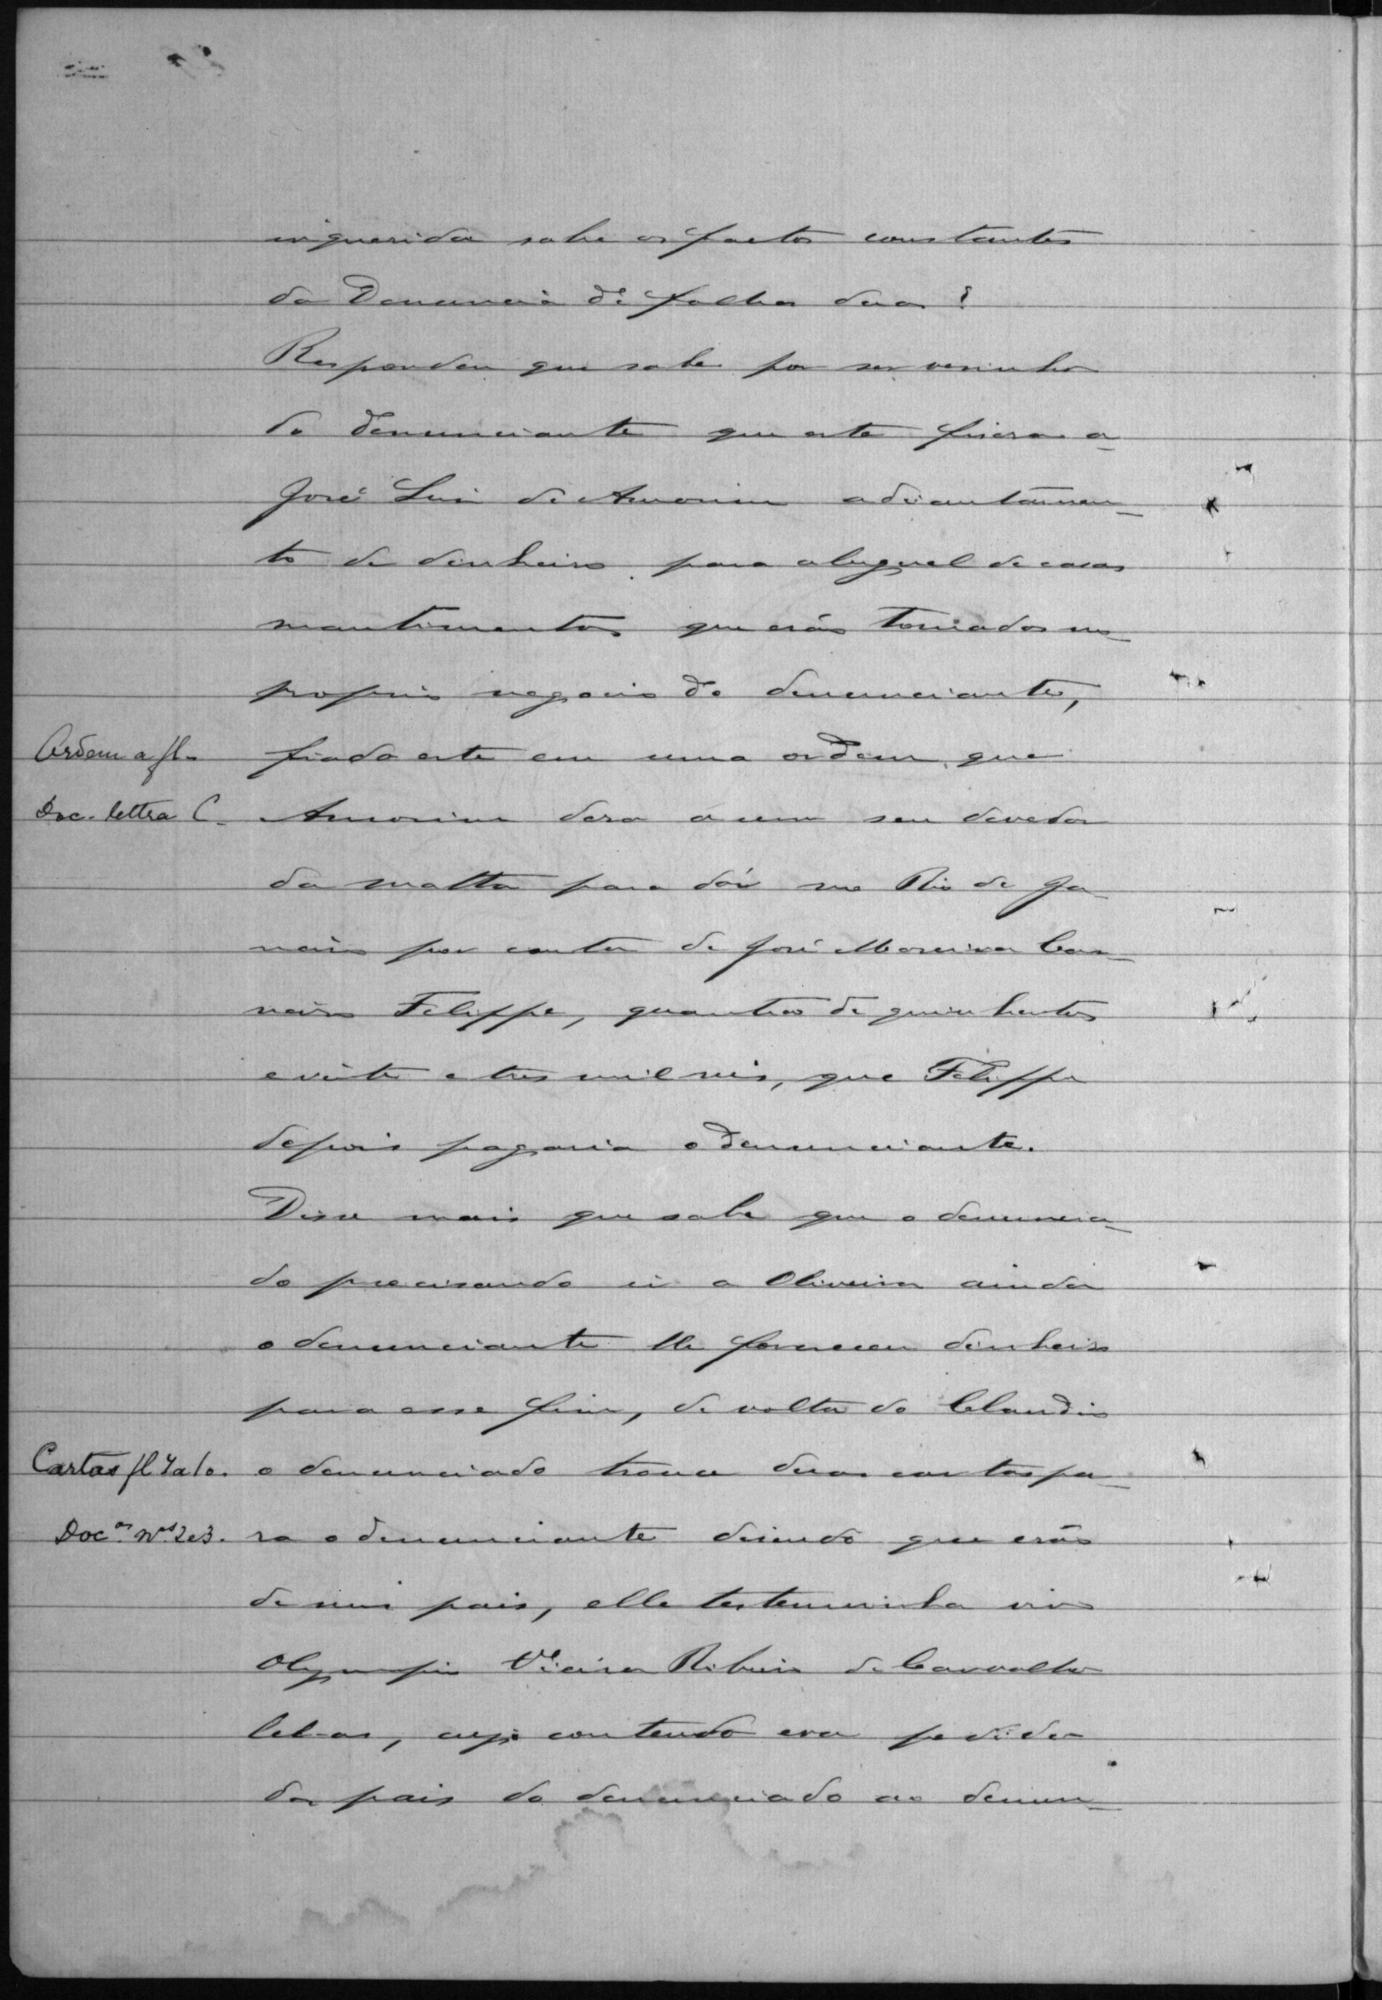 inquerida sabe os factos constantes
da Denuncia de folhas duas?
Respondeu que sabe por ser vesinho
do denunciante que este fisera a
José Luis de Amorim adiantamen-
to de dinheiro para aluguel de casas
mantimentos que erão tomados no
proprio negocio do denunciante,
Ordem a fl.
fiado este em uma ordem que
Doc. lettra C.
Amorim dera a um seu devedor
da matta para dár no Rio de Ja
neiro por conta de José Moreira Car-
neiro Felippe, quantia de quinhentos
e vinte e tres mil reis, que Felippe
depois pagaria o denunciante.
Disse mais que sabe que o denuncia-
do precisando ir a Oliveira ainda
o denunciante lhe forneceu dinheiro
para esse fim, de volta do Claudio
Cartas fl 9 a 10.
o denunciado trouce duas cartas pa-
Doc.os Nos 2 e 3.
ra o denunciante disendo que erão
de seus pais, elle testemunha viu
Olympio Vieira Ribeiro de Carvalho
lel-as, cujo contendo era pedido
dos pais do denunciado ao denun-